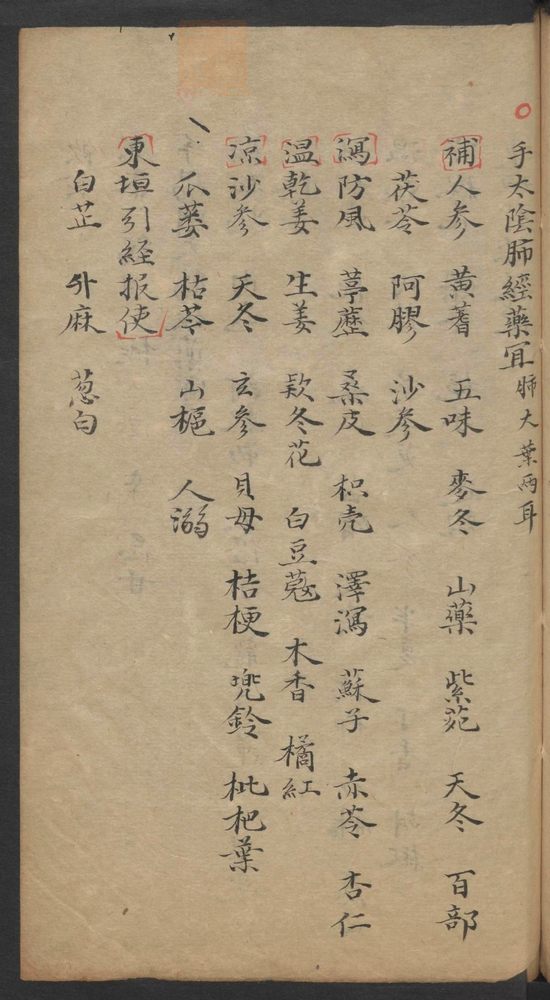 手太陰肺經藥宜 肺大葉両耳
補人参 黄蓍 五味 麥冬 山藥 紫菀 天冬 百部
茯苓 阿膠 沙参
瀉防風 葶藶 桑皮 枳壳 澤瀉 蘇子 赤苓 杏仁
温乾姜 生姜 欵冬花 白豆蔻 木香 橘紅
凉沙参 天冬 玄参 貝母 桔梗 兠鈴 枇杷葉
爪蔞 枯苓 山梔 人溺
東垣引経报使
白芷 升麻 葱白